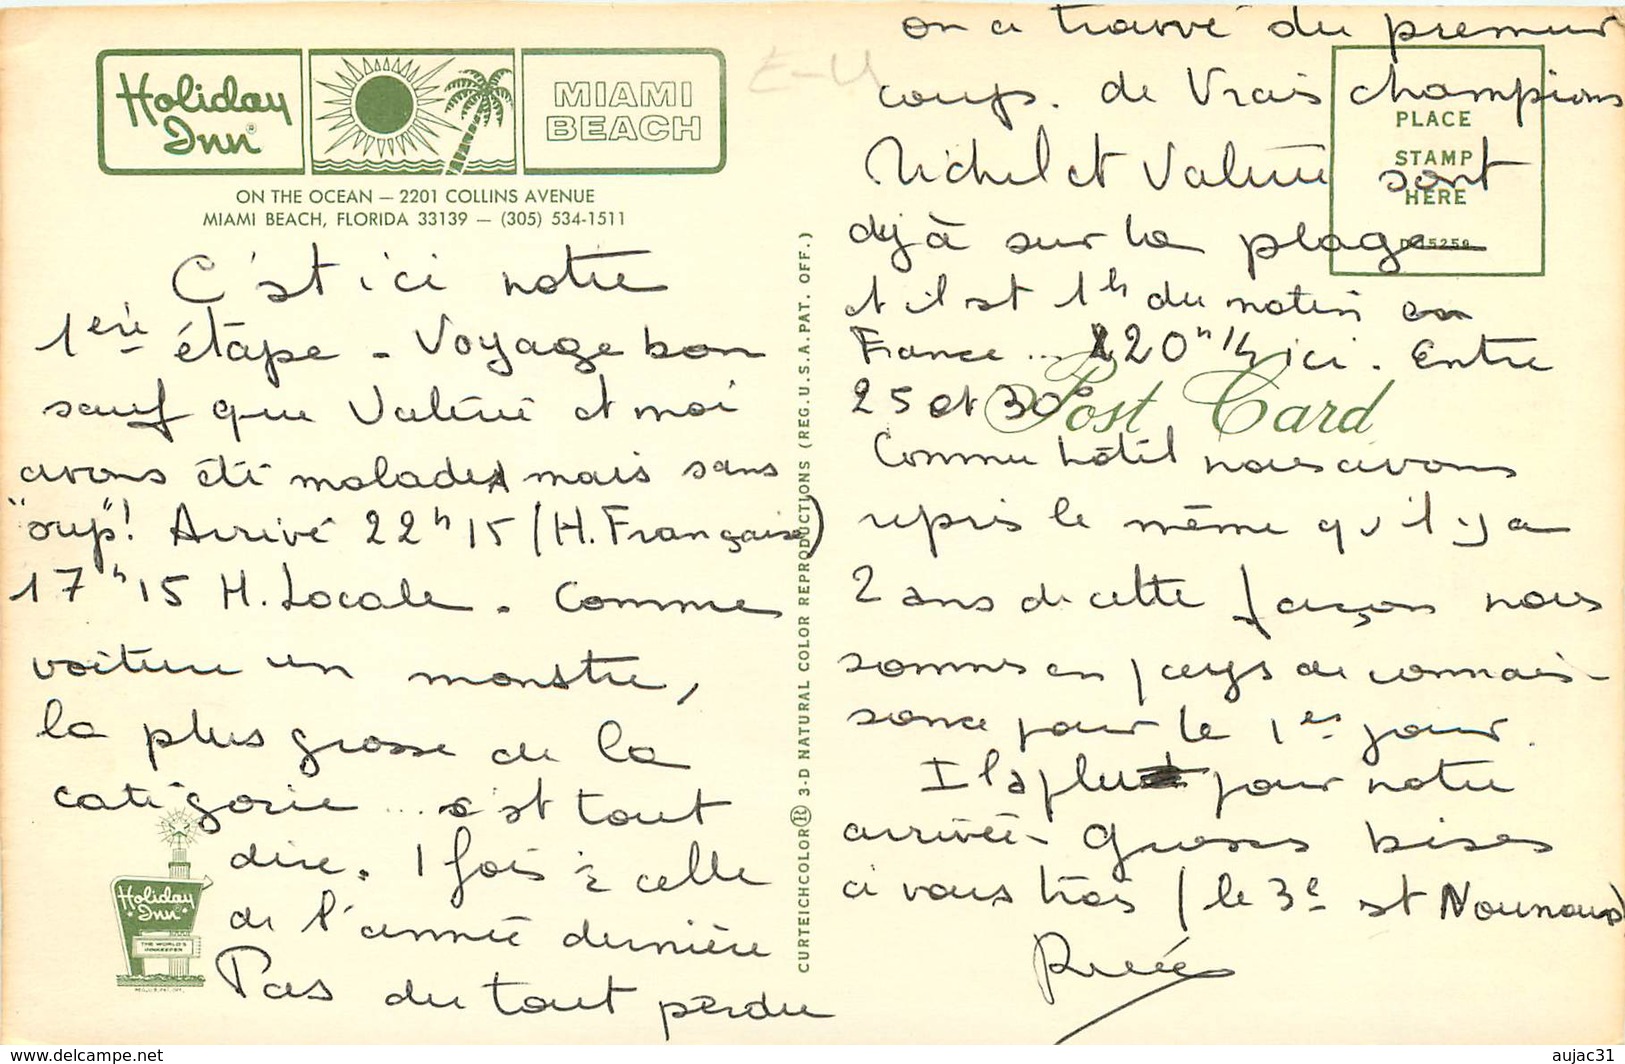 Holiday Inn®
MIAMI BEACH
ON THE OCEAN — 2201 COLLINS AVENUE
MIAMI BEACH, FLORIDA 33139 — (305) 534-1511
E-U
C'est ici notre
1ère étape - Voyage bon
sauf que Valérie et moi
avons été malades mais sans
"oup"! Arrivé 22h15 (H. Française)
17h15 H. Locale. Comme
voiture un monstre,
la plus grosse de la
catégorie... c'est tout
dire. 1 fois 1/2 celle
de l'année dernière
Pas du tout perdu
Holiday Inn®
THE WORLD'S INNKEEPER
REG. U.S. PAT. OFF.
CURTEICHCOLOR® 3-D NATURAL COLOR REPRODUCTIONS (REG. U.S.A. PAT. OFF.)
on a trouvé du premier
coup. de Vrais champions
Michel et Valérie sont
déjà sur la plage
et il est 1h du matin en
France... 20h1/4 ici. Entre
25 et 30°
Comme hôtel nous avons
repris le même qu'il y a
2 ans de cette façon nous
sommes en pays de connais-
sance pour le 1er jour.
Il a plu pour notre
arrivée - Grosses bises
à vous trois (le 3e est Nounours)
PLACE
STAMP
HERE
Post Card
www.delcampe.net
aujac31